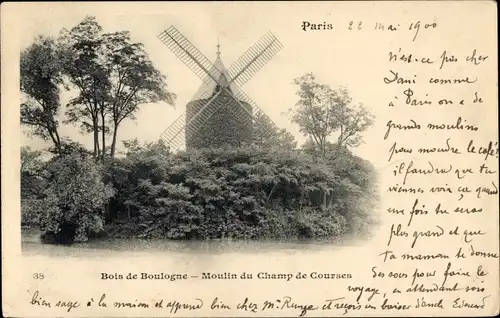 Paris
22 mai 1900
N'est-ce pas cher
Dani comme
à Paris on a de
grands moulins
pour moudre le café.
il faudra que tu
viennes voir cela
une fois tu seras
plus grand et que
ta maman te donne
des sous pour faire le
voyage, en attendant sois
bien sage à la maison et apprend bien chez Mr et reçois un baiser d'oncle Edouard
38
Bois de Boulogne — Moulin du Champ de Courses